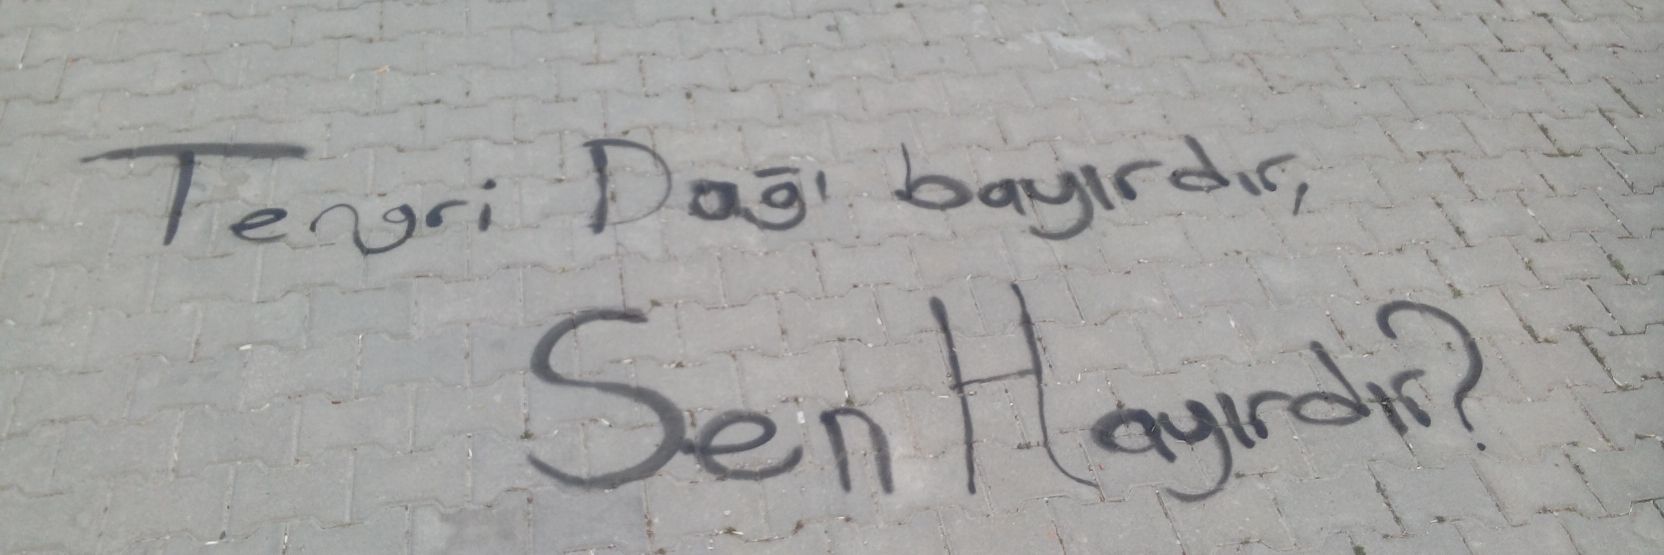 Tengri Dağı bayırdır,
Sen Hayırdır?